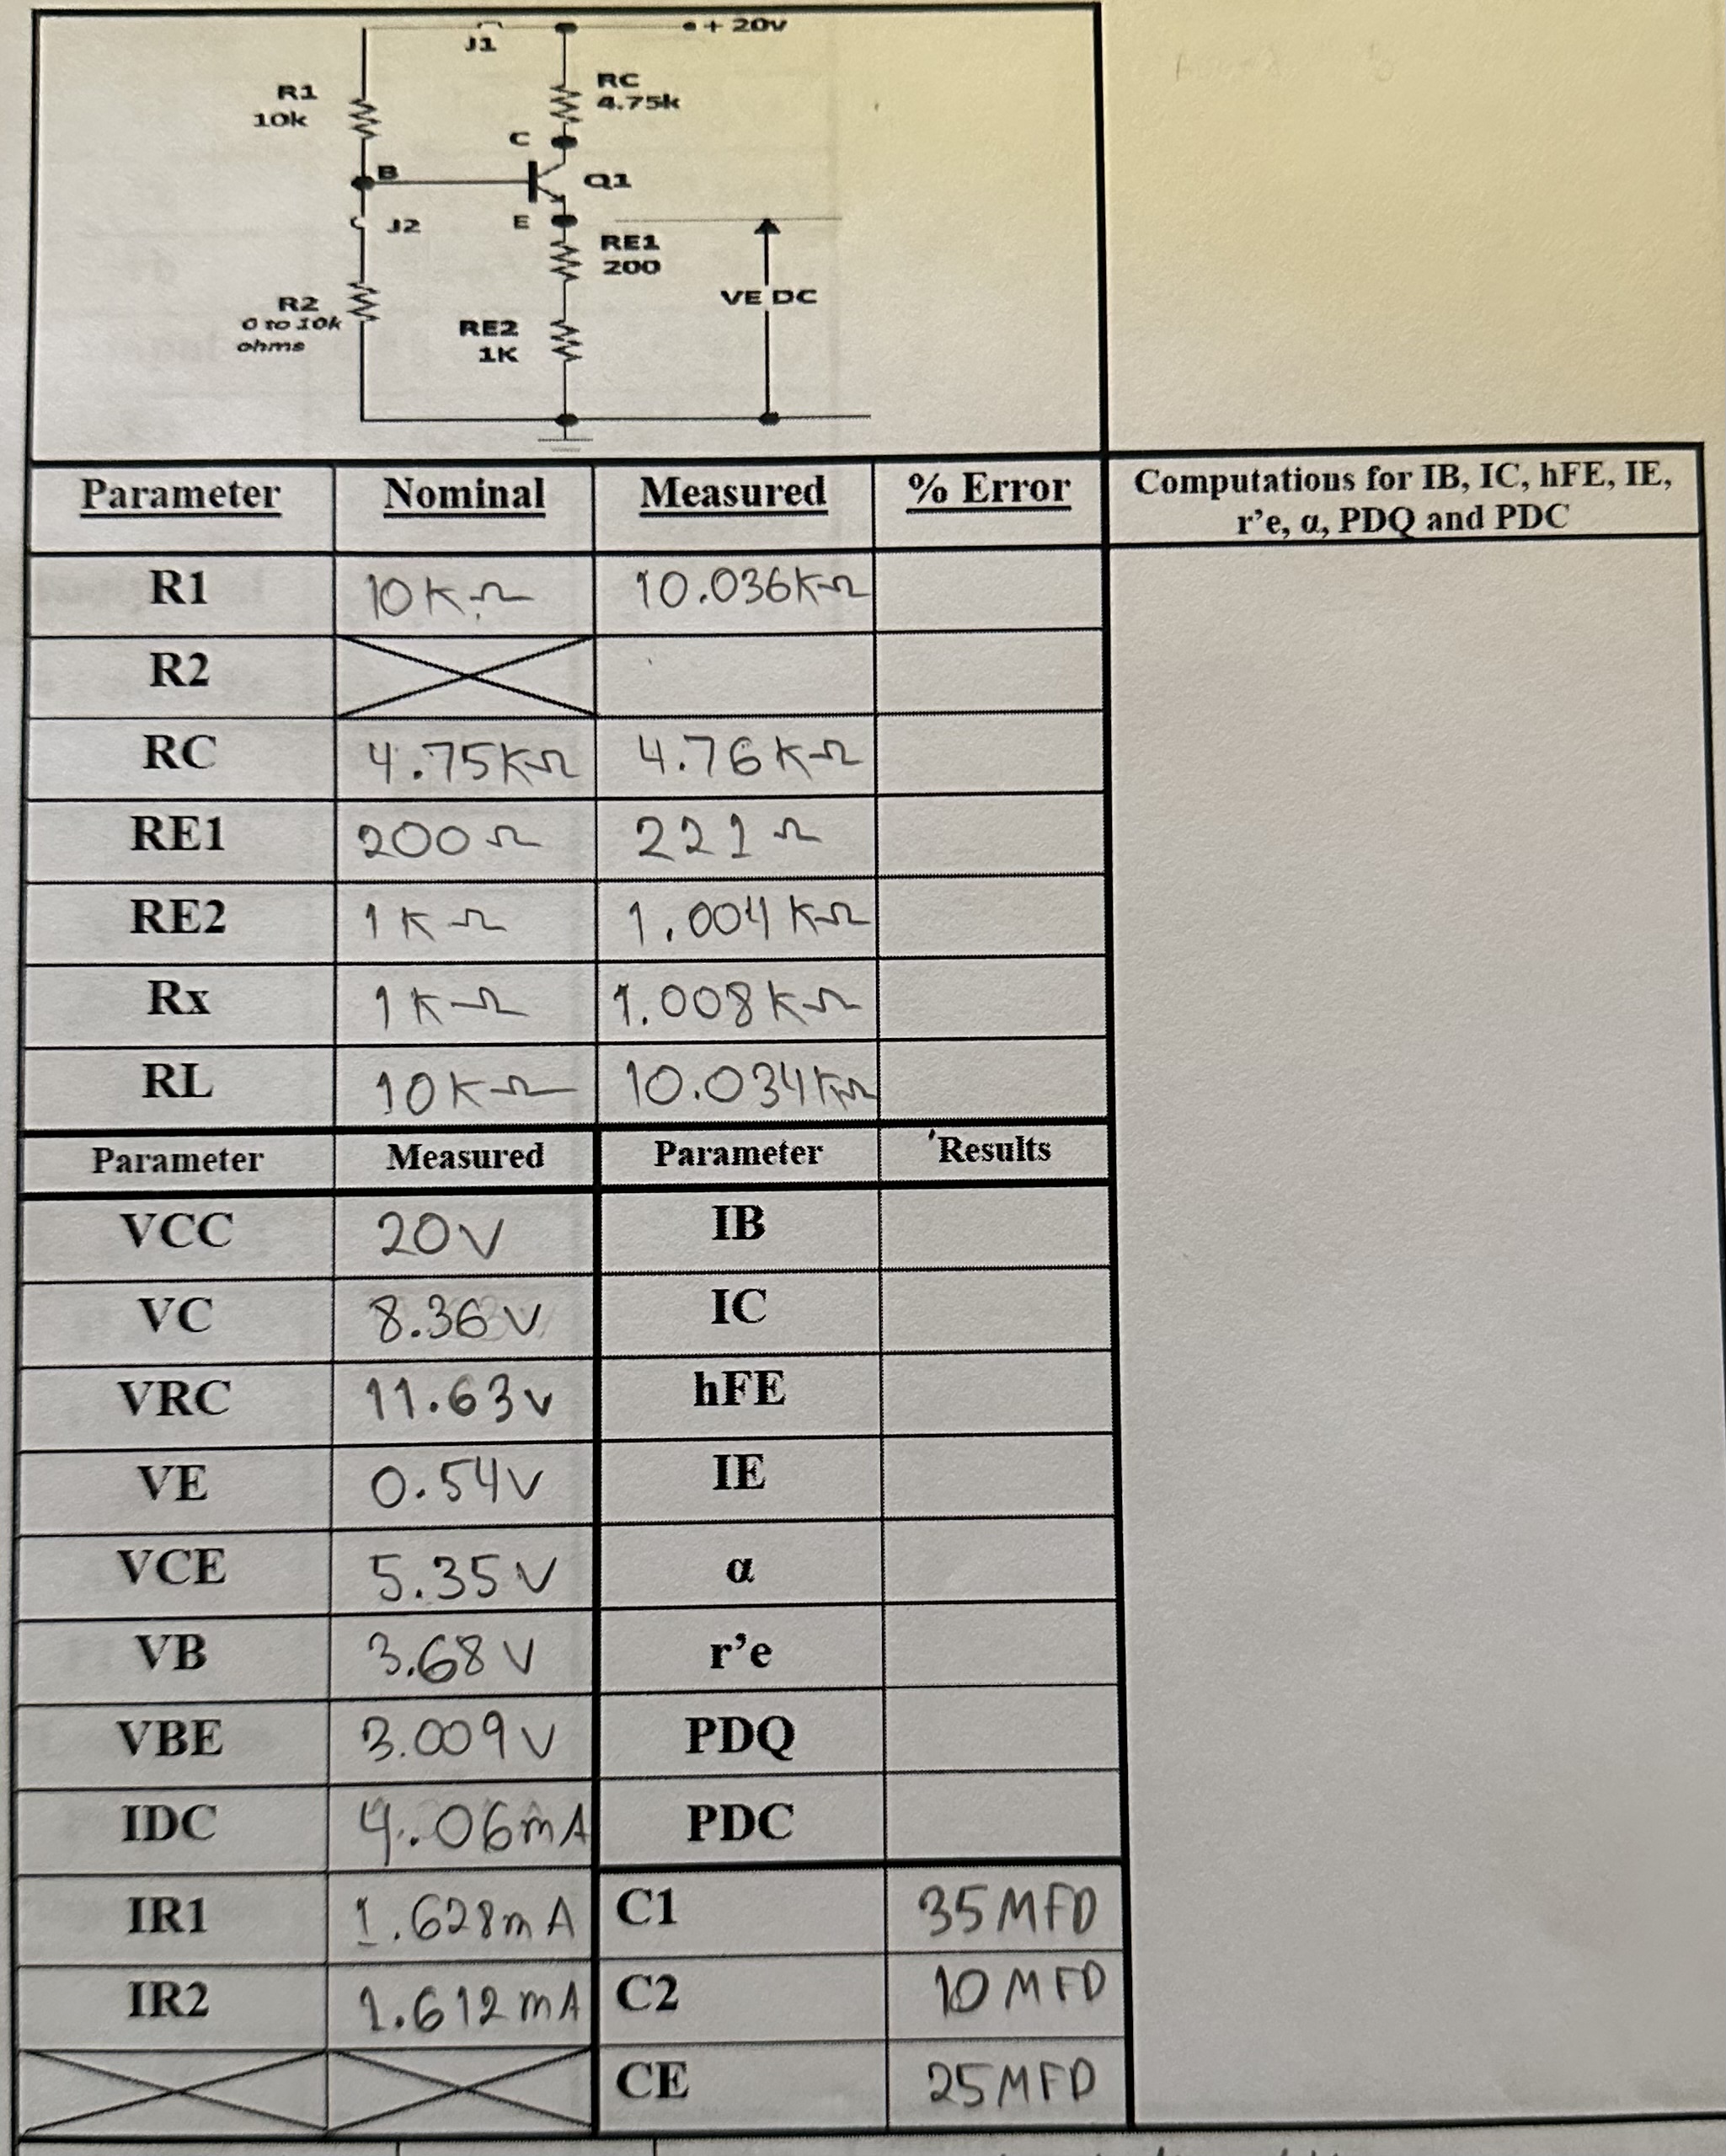 J1
+ 20v
R1
10k
RC
4.75k
C
B
Q1
J2
E
RE1
200
VE DC
R2
0 to 10k
ohms
RE2
1K
Parameter Nominal Measured % Error Computations for IB, IC, hFE, IE,
r'e, α, PDQ and PDC
R1 10KΩ 10.036KΩ
R2
RC 4.75KΩ 4.76KΩ
RE1 200Ω 221Ω
RE2 1KΩ 1.004KΩ
Rx 1KΩ 1.008KΩ
RL 10KΩ 10.034KΩ
Parameter Measured Parameter Results
VCC 20V IB
VC 8.36V IC
VRC 11.63v hFE
VE 0.54V IE
VCE 5.35V α
VB 3.68V r'e
VBE 3.009V PDQ
IDC 4.06mA PDC
IR1 1.628mA C1 35MFD
IR2 1.612mA C2 10MFD
CE 25MFD